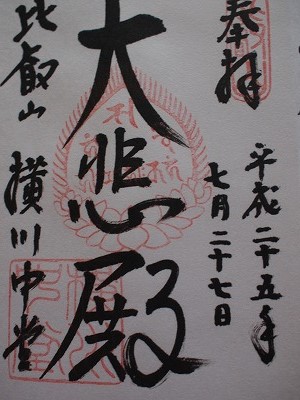 奉拝
平成二十五年
七月二十七日
大悲殿
比叡山 横川中堂